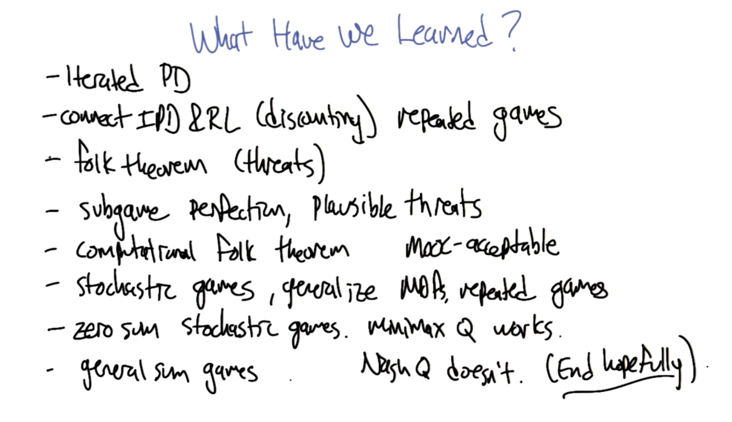 What Have We Learned?
- Iterated PD
- connect IPD & RL (discounting) repeated games
- folk theorem (threats)
- subgame perfection, plausible threats
- computational folk theorem mooc-acceptable
- stochastic games, generalize MDPs, repeated games
- zero sum stochastic games. minimax Q works.
- general sum games. Nash Q doesn't. (End hopefully).